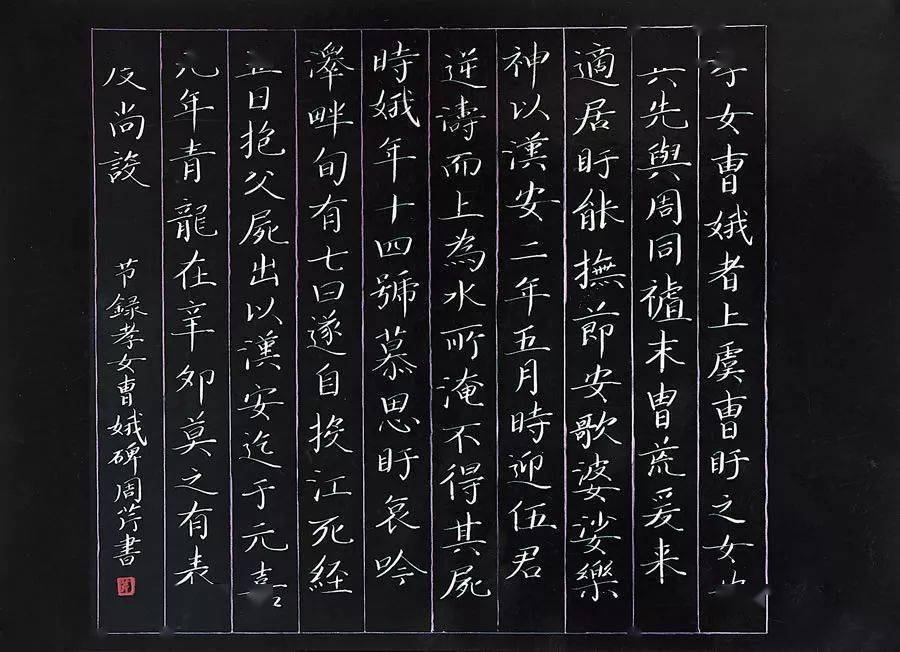 孝女曹娥者上虞曹盱之女也
其先與周同末胄荒爰来
適居盱能撫節安歌婆娑樂
神以漢安二年五月時迎伍君
逆濤而上為水所淹不得其屍
時娥年十四號慕思盱哀吟
澤畔旬有七日遂自投江死經
五日抱父屍出以漢安迄于元嘉
元年青龍在辛卯莫之有表
度尚設
节録孝女曹娥碑周芹書